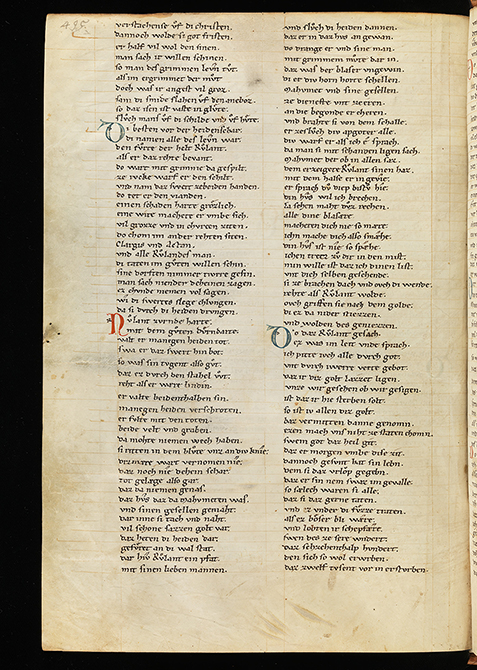 495
verstachense vf di christen.
dannoch wolde si got fristen.
er half vil wol den sinen.
man sach ir willen schinen.
so man des grimmen lewn tvt.
als im ergrimmet der mvt
doch was ir angest vil groz.
sam di smide slahen vf den anebox.
so daz isen ist valte in glvte.
slvch mans vf di schilde vnd vf hvte.
Di besten von der heidenschar.
di namen alle des lewn war.
den fvrte der helt Rvlant.
als er daz rehte bevant.
do wart mit grimme da gespilt.
ze wekc warf er den schilt.
vnd nam daz swert zebeiden handen.
do tet er den vianden.
einen schaden harte grozlich.
eine wite machete er vmbe sich.
vil grozze vnd in churcen ziten.
do chom im ander rehten siten.
Clargis vnd alctan.
vnd alle Rvlandes man.
di taten im gvten willen schin.
sine dorften nimmer tiwrre gesin.
man sach mender deheinen zagen.
ez chvnde niemen vol sagen.
wi di swertes slege chlvngen.
da si dvrch di heiden drvngen.
Rvlant zvrnde harte.
mit dem gvten dvrndarte.
valt er manegen heiden tot.
swa er daz swert hin bot.
so was sin tvgent also gvt.
daz er dvrch den stahel wt.
reht als er wær lindin.
er valte heidenthalben sin.
manegen heiden verschroten.
er fvlte mit den toten.
beide velt vnd graben.
da mohte niemen wech haben.
si ritten in dem blvte vnz an div knie.
dizmaze wart vernomen nie.
daz noch nie dehein schar.
tot gelæge also gar.
daz da niemen genas.
daz hvs daz da mahvmeten was.
vnd sinen gesellen gemaht.
dar inne si tach vnd naht.
vil schone sazzen golt var.
daz heten di heiden dar.
gefvret an di wal stat.
dar hiv Rvlant ein pfat.
mit sinen lieben mannen.
vnd slvch di heiden dannen.
daz er in daz hvs an gewan.
do drange er vnd sine man.
mit grimmem mvte dar in.
daz was der blaser vngewin.
di er div horn horte schellen.
Mahvmet vnd sine gesellen.
ze dieneste vnt zeeren.
an die begonde er cheren.
vnd brahte si von dem schalle.
er zeslvch div apgoter alle.
div warf er als ich e sprach.
da man si mit schanden ligen sach.
Mahvmet der ob in allen saz.
dem erzeigete Rvlant sinen haz.
mit dem halse er in gevie.
er sprach dv diep bistv hie.
din hvs wil ich brechen.
la sehen maht dvz rechen.
alle dine blasære
macheten dich nie so mære
ichn mache dich also smæhe.
din hvs ist nie so spæhe.
ichen tretz zv dir in den mist.
min wille ist daz ich dinen list.
vnt dich selben geschende.
si ze brachen dach vnd ovch di wende.
rehte als Rvlant wolde.
ovch griffen sie nach dem golde.
di ez da nider stiezzen.
vnd wolden des geniezzen.
Do daz Rvlant gesach.
ez was im leit vnde sprach.
ich pitte ivch alle dvrch got.
vnt dvrch iwerre verte gebot.
daz ir diz golt lazzet ligen.
vnze wir gesehen ob wir gesigen.
ist daz ir hie sterben solt.
so ist iv allen diz golt.
daz vermitten danne genomn.
ezen mach vns niht ze staten chomn.
swem got daz heil git.
daz er morgen vmbe dise zit.
dannoch gesvnt hat sin lebn.
dem si daz vrlop gegebn.
daz er sin nem swaz im gevalle.
so sælech waren si alle.
daz si daz gerne taten.
vnd ez vnder di fvzze traten.
als ez bôser bli wære.
vnd lobten ir schepfære.
swen des ze sere wvndert.
daz sehzehenthalp hvndert.
den sich so wol erwerten.
daz zwelf tvsent vor in ersturben.